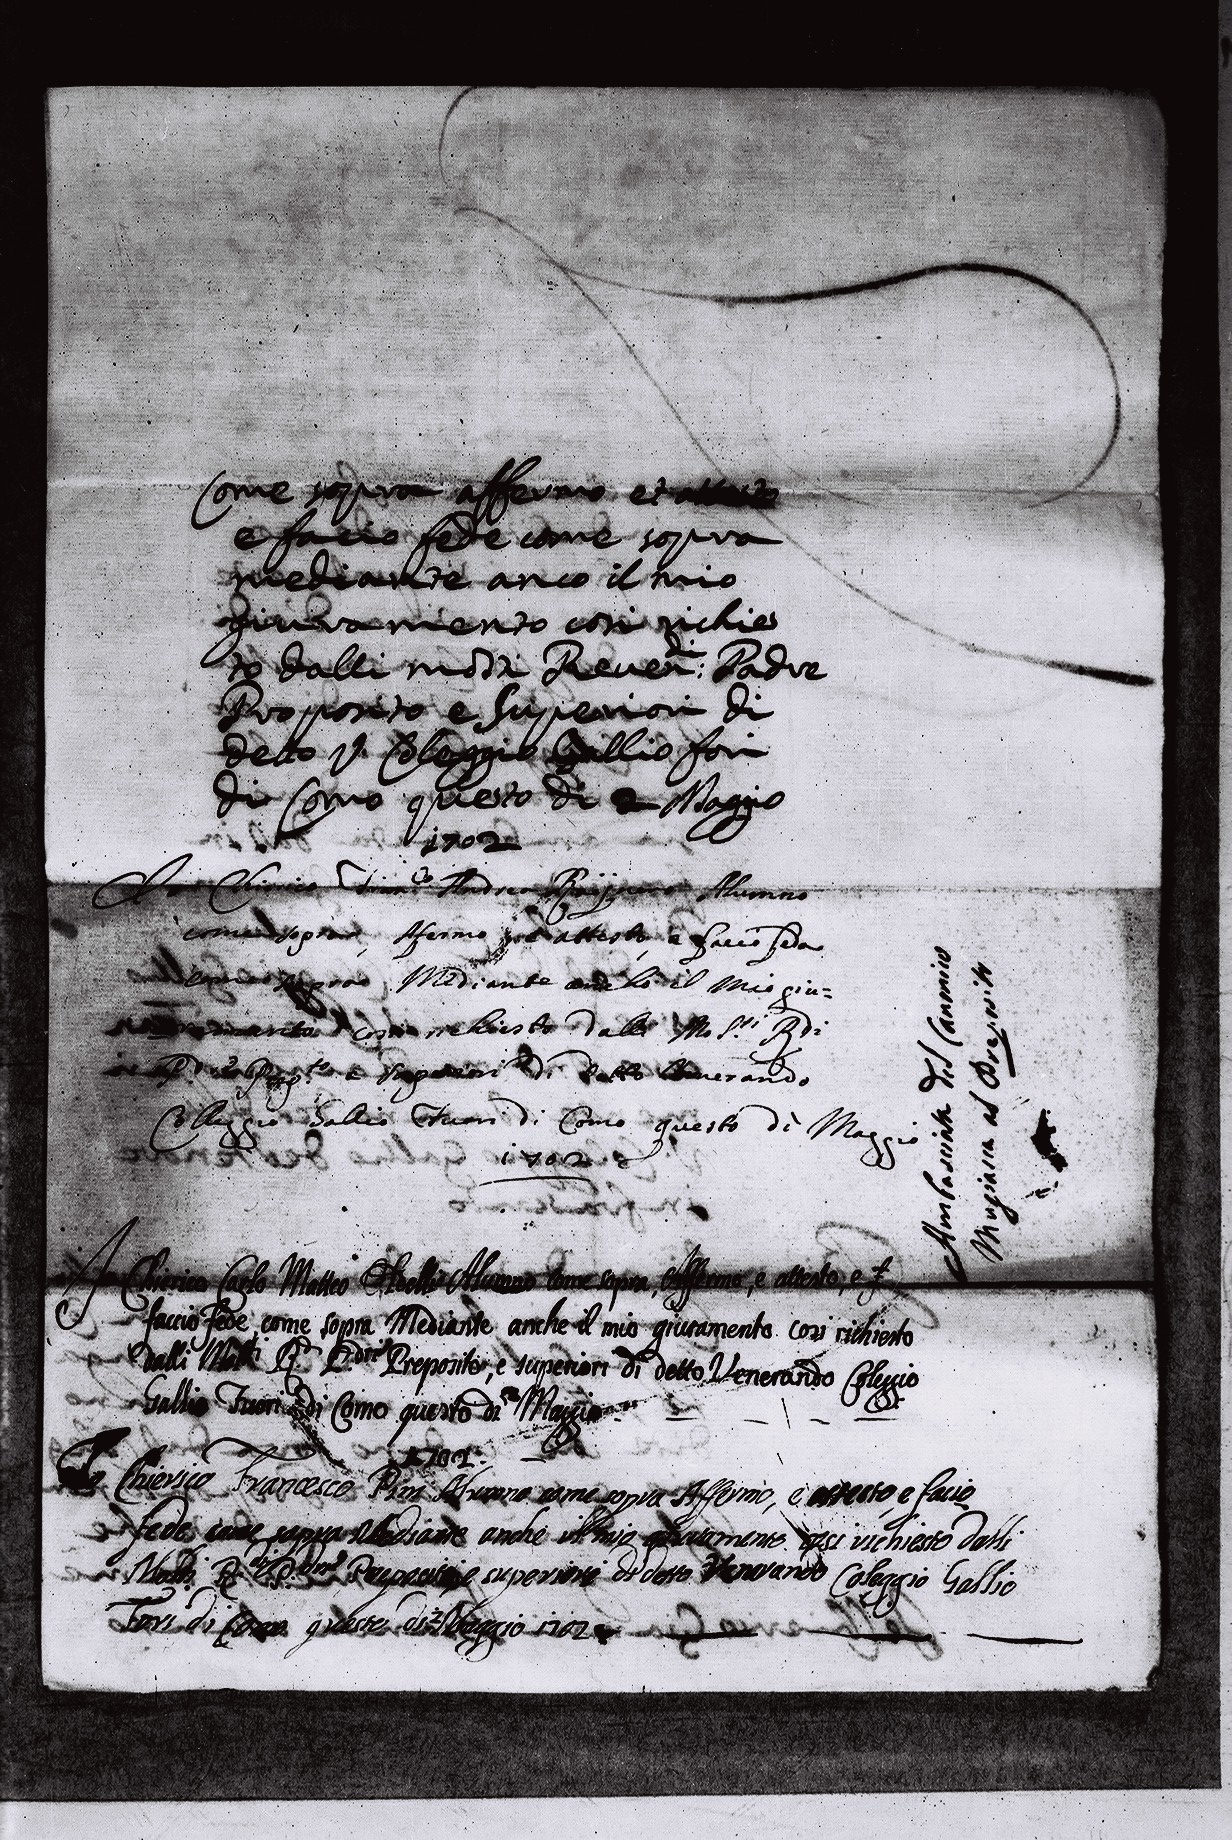 Come sopra affermo et attesto
e facio fede come sopra
mediante anco il mio
giuramento cosi richies
to dalli molti Reuerdi: Padre
Proposito e Superiori di
detto V. Coleggio Gallio fori
di Como questo di 2 Maggio
1702
Io Chierico Andrea Alumno
come sopra, Afermo, e attesto, e Faccio Fede
come sopra Mediante anche il Mio giu=
ramento cosi richiesto dalli Molti Rdi
e Superiori di detto Venerando
Colleggio Gallio Fuori di Como questo di Maggio
1702
Io Chierico Carlo Matteo Alunno come sopra, Affermo, e attesto, e f
faccio fede, come sopra Mediante anche il mio giuramento cosi richiesto
dalli Molti R. P. Preposito, e superiori di detto Venerando Coleggio
Gallio Fuori di Como questo di 2 Maggio
1702.
Io Chierico Francesco Pini Alunno come sopra Affermo, e attesto, e facio
fede, come sopra Mediante anche il mio giuramento cosi richiesto dalli
Molti R. P. Preposito, e superiori di detto Venerando Coleggio Gallio
Fuori di Como questo di 2 Maggio 1702
Ambasciata del
al Preposito